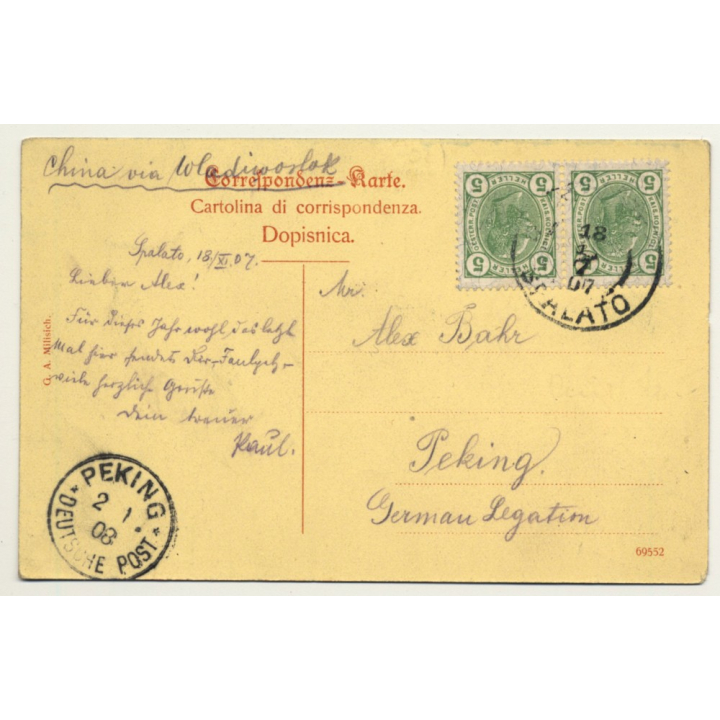 China via Wladiwostok
Correspondenz-Karte.
Cartolina di corrispondenza.
Dopisnica.
5 5
HELLER HELLER
5 5
18
XI
07
SPALATO
Spalato, 18/XI.07.
Lieber Alex!
Für dieses Jahr wohl das letzte
Mal hier sendet Der
viele herzliche Grüße
Dein treuer
Paul.
Mr.
Alex Bahr
Peking.
German Legation
G. A. Milisich.
PEKING
2 1
08
DEUTSCHE POST
69552